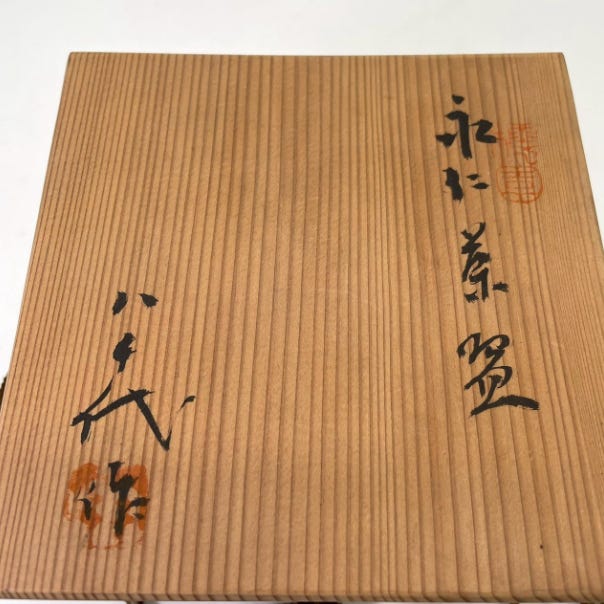 永仁茶盌
八千代作